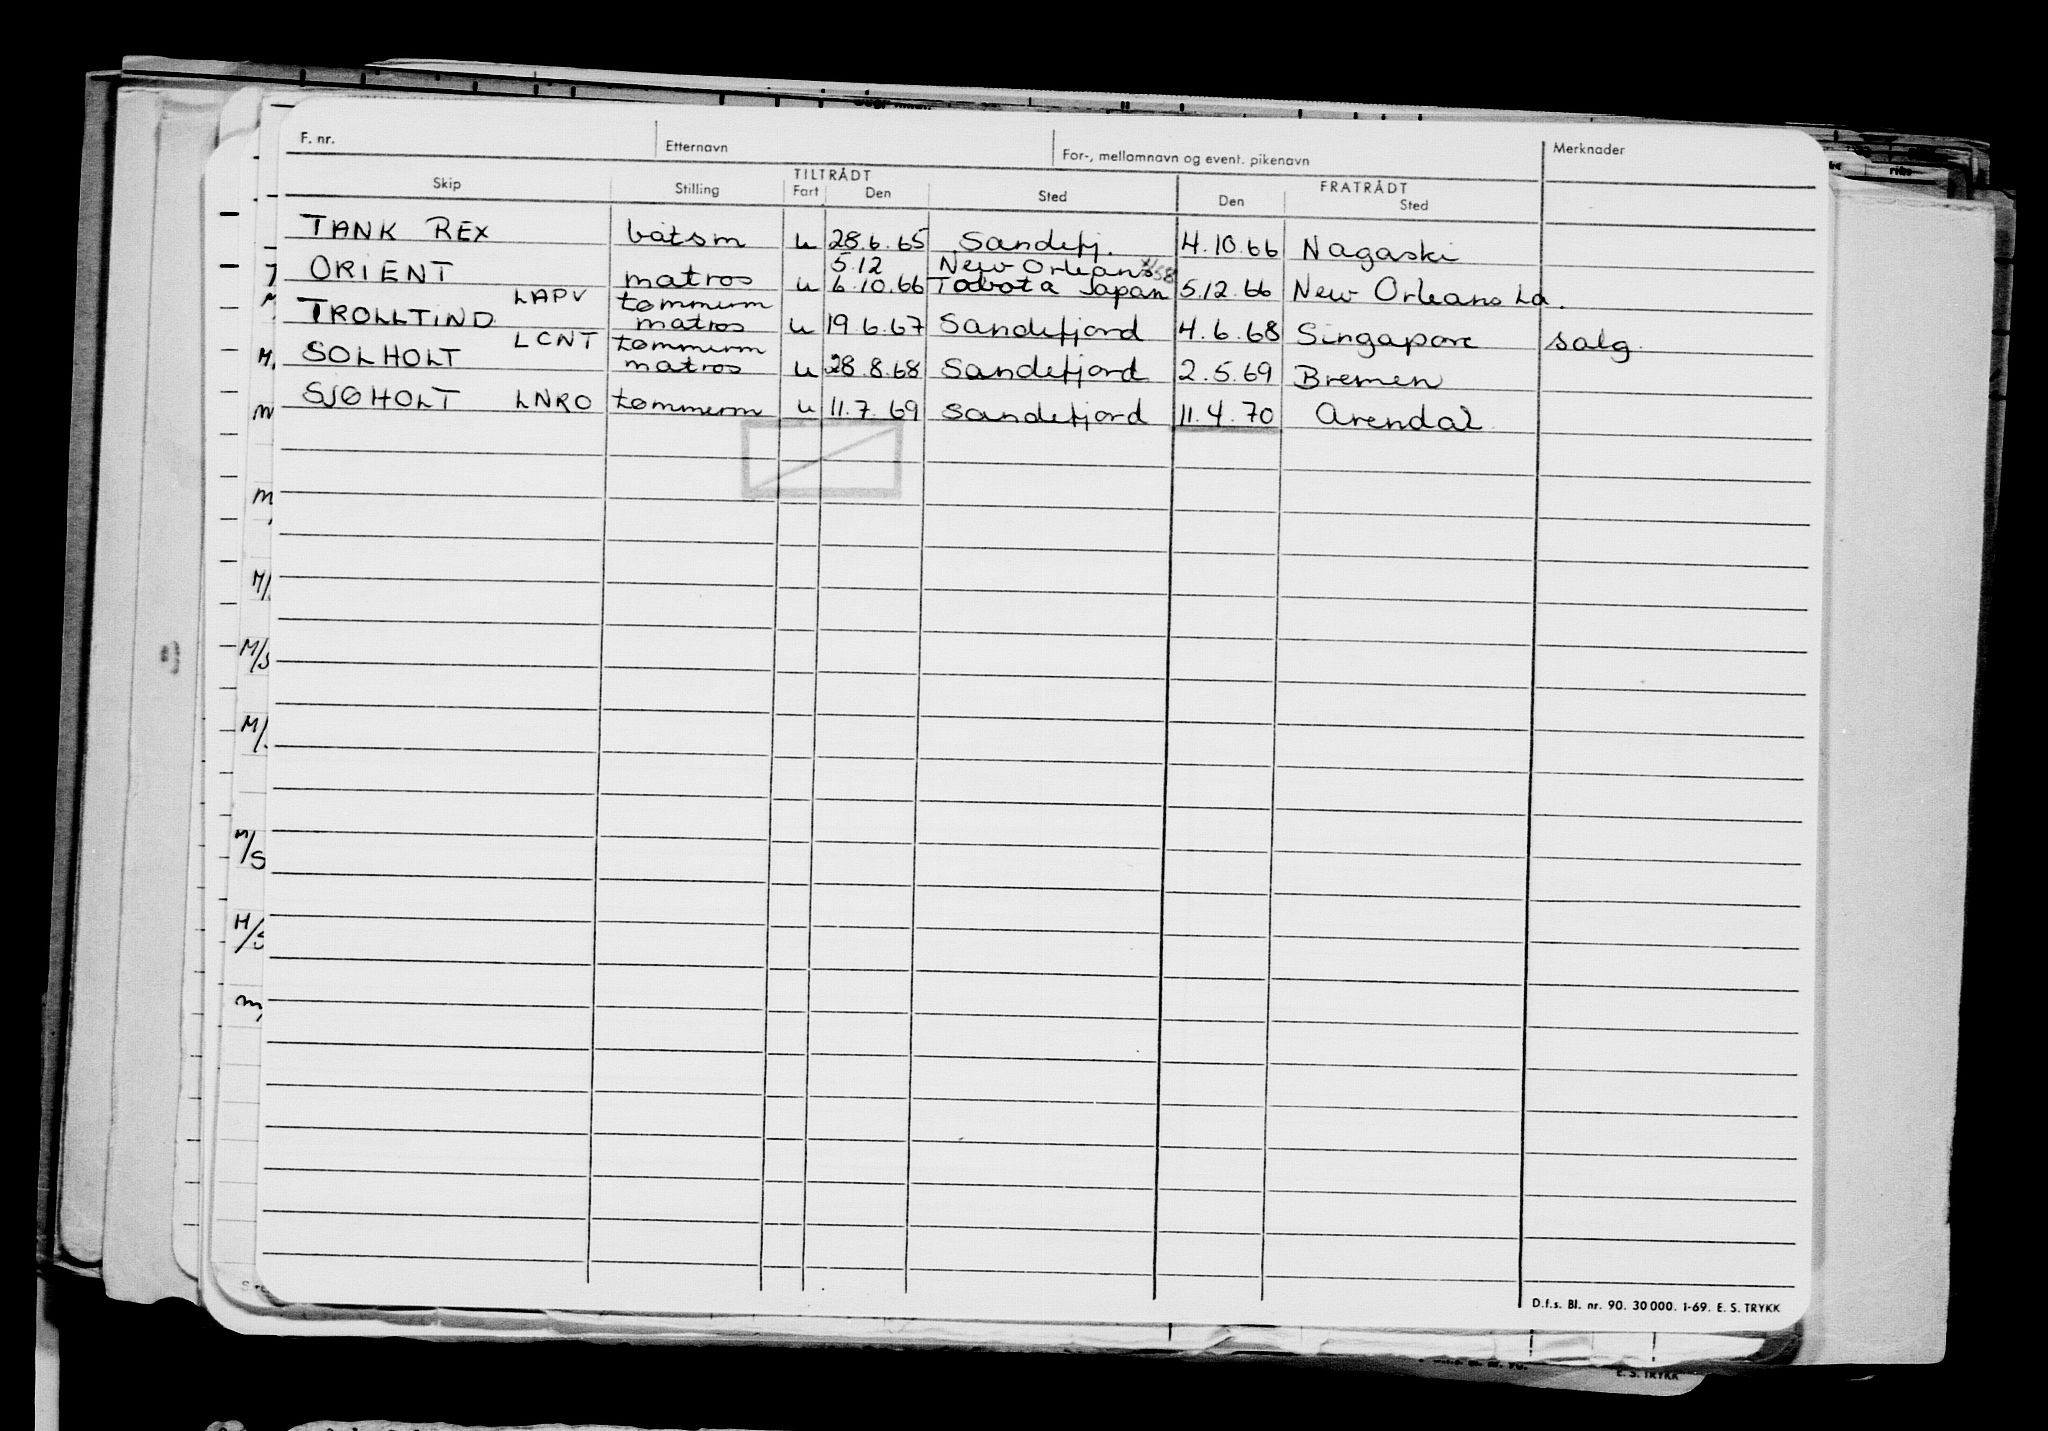 F. nr. Etternavn For-, mellomnavn og event. pikenavn Merknader
TILTRÅDT FRATRÅDT
Skip Stilling Fart Den Sted Den Sted
TANK REX båtsm u 28.6.65 Sandefj. 4.10.66 Nagaski
5.12 New Orleans
ORIENT matros u 6.10.66 Tabata Japan 5.12.66 New Orleans La.
LAPV tømmerm
TROLLTIND matros u 19.6.67 Sandefjord 4.6.68 Singapore salg
LCNT tømmerm
SOLHOLT matros u 28.8.68 Sandefjord 2.5.69 Bremen
SJØHOLT LNRO tømmerm u 11.7.69 Sandefjord 11.4.70 Arendal
M/S
M/S
M/S
D.f.s. Bl. nr. 90. 30 000. 1-69. E. S. TRYKK
E. S. TRYKK